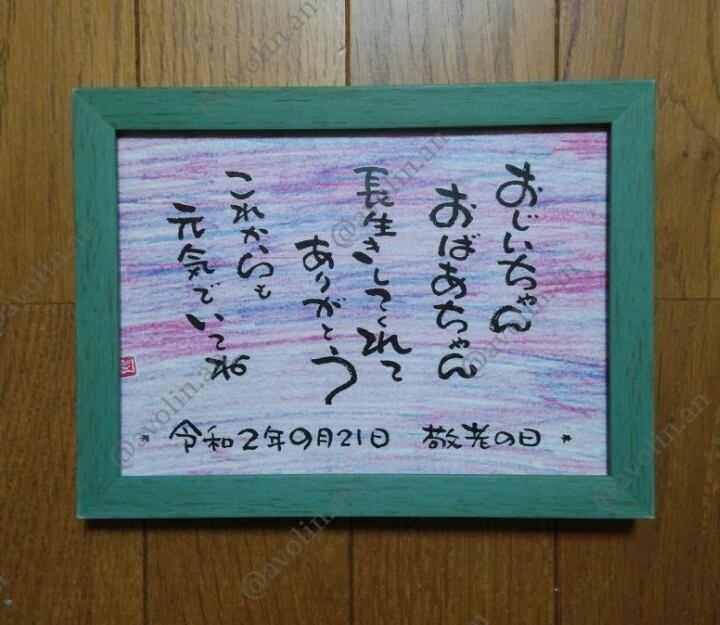 おじいちゃん
おばあちゃん
長生きしてくれて
ありがとう
これからも
元気でいてね
* 令和2年9月21日 敬老の日 *
@avolin.an